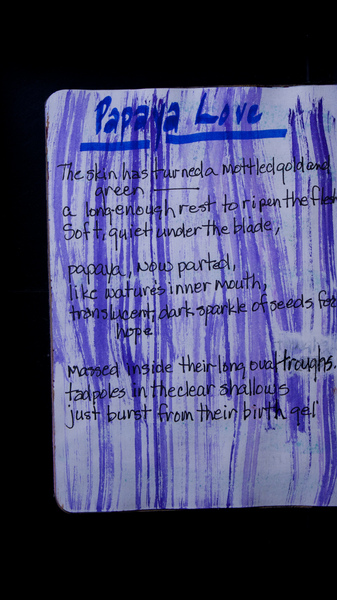 Papaya Love
The skin has turned a mottled gold and
green
a long-enough rest to ripen the flesh
Soft, quiet under the blade,
papaya, now parted,
like nature's inner mouth,
translucent, dark sparkle of seeds for
hope
Massed inside their long oval troughs.
tadpoles in the clear shallows
just burst from their birth gel